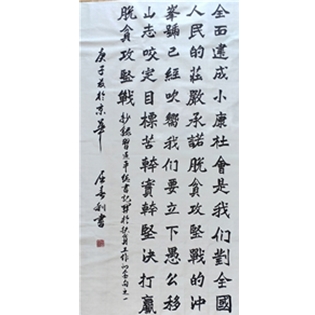 全面建成小康社會是我们對全國
人民的莊嚴承諾脫貧攻堅戰的沖
峯號已經吹響我们要立下愚公移
山志咬定目標苦幹實幹堅決打贏
脫貧攻堅戰
庚子友於京華
屈春利書